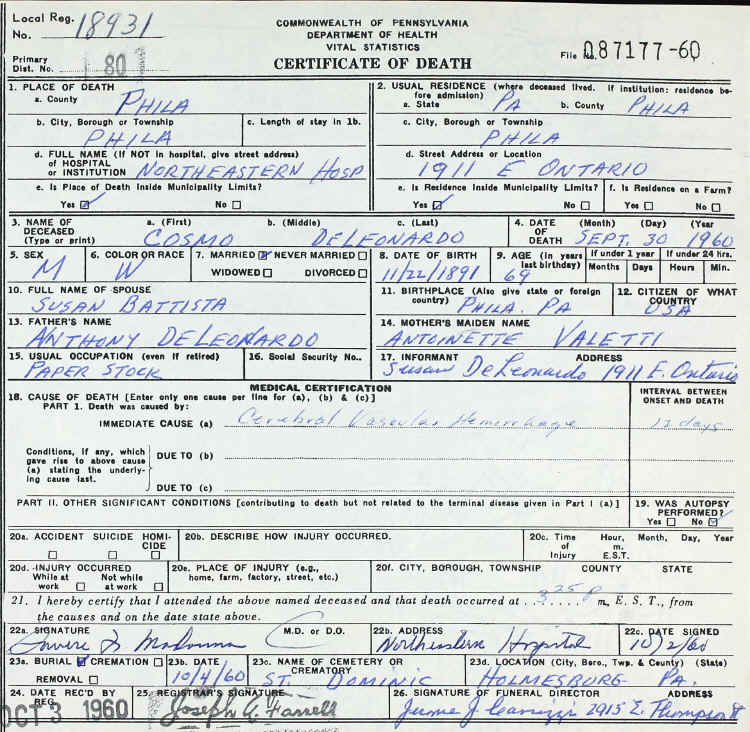 Local Reg. No. 18931
COMMONWEALTH OF PENNSYLVANIA
DEPARTMENT OF HEALTH
VITAL STATISTICS
CERTIFICATE OF DEATH
File No. 087177-60
Primary Dist. No. 801
1. PLACE OF DEATH
a. County PHILA
b. City, Borough or Township PHILA
c. Length of stay in 1b.
d. FULL NAME (If NOT in hospital, give street address) of HOSPITAL or INSTITUTION NORTHEASTERN HOSP
e. Is Place of Death Inside Municipality Limits?
Yes ☑ No ☐
2. USUAL RESIDENCE (where deceased lived. If institution: residence before admission)
a. State PA b. County PHILA
c. City, Borough or Township PHILA
d. Street Address or Location 1911 E ONTARIO
e. Is Residence Inside Municipality Limits?
Yes ☑ No ☐
f. Is Residence on a Farm?
Yes ☐ No ☐
3. NAME OF DECEASED (Type or print) a. (First) b. (Middle) c. (Last)
COSMO DeLEONARDO
4. DATE OF DEATH (Month) (Day) (Year)
SEPT. 30 1960
5. SEX M
6. COLOR OR RACE W
7. MARRIED ☑ NEVER MARRIED ☐
WIDOWED ☐ DIVORCED ☐
8. DATE OF BIRTH 11/22/1891
9. AGE (in years last birthday) 69
If under 1 year Months Days
If under 24 hrs. Hours Min.
10. FULL NAME OF SPOUSE
SUSAN BATTISTA
11. BIRTHPLACE (Also give state or foreign country) PHILA. PA
12. CITIZEN OF WHAT COUNTRY USA
13. FATHER'S NAME
ANTHONY DeLEONARDO
14. MOTHER'S MAIDEN NAME
ANTOINETTE VALETTI
15. USUAL OCCUPATION (even if retired)
PAPER STOCK
16. Social Security No..
17. INFORMANT ADDRESS
Susan DeLeonardo 1911 E. Ontario
MEDICAL CERTIFICATION
18. CAUSE OF DEATH [Enter only one cause per line for (a), (b) & (c)]
INTERVAL BETWEEN ONSET AND DEATH
PART 1. Death was caused by:
IMMEDIATE CAUSE (a) Cerebral Vascular Hemorrhage
days
Conditions, if any, which gave rise to above cause (a) stating the underlying cause last.
DUE TO (b)
DUE TO (c)
PART II. OTHER SIGNIFICANT CONDITIONS [contributing to death but not related to the terminal disease given in Part I (a)]
19. WAS AUTOPSY PERFORMED?
Yes ☐ No ☑
20a. ACCIDENT SUICIDE HOMICIDE
☐ ☐ ☐
20b. DESCRIBE HOW INJURY OCCURRED.
20c. Time of Injury Hour, m. E.S.T. Month, Day, Year
20d. INJURY OCCURRED
While at work ☐ Not while at work ☐
20e. PLACE OF INJURY (e.g., home, farm, factory, street, etc.)
20f. CITY, BOROUGH, TOWNSHIP COUNTY STATE
21. I hereby certify that I attended the above named deceased and that death occurred at 3 25 p m., E. S. T., from
the causes and on the date state above.
22a. SIGNATURE M.D. or D.O.
22b. ADDRESS
Northeastern Hospital
22c. DATE SIGNED
10/2/60
23a. BURIAL ☑ CREMATION ☐
REMOVAL ☐
23b. DATE
10/4/60
23c. NAME OF CEMETERY OR CREMATORY
ST. DOMINIC
23d. LOCATION (City, Boro., Twp. & County) (State)
HOLMESBURG PA.
24. DATE REC'D BY REG.
OCT 3 1960
25. REGISTRAR'S SIGNATURE
Joseph A. Farrell
26. SIGNATURE OF FUNERAL DIRECTOR ADDRESS
2915 E. Thompson St